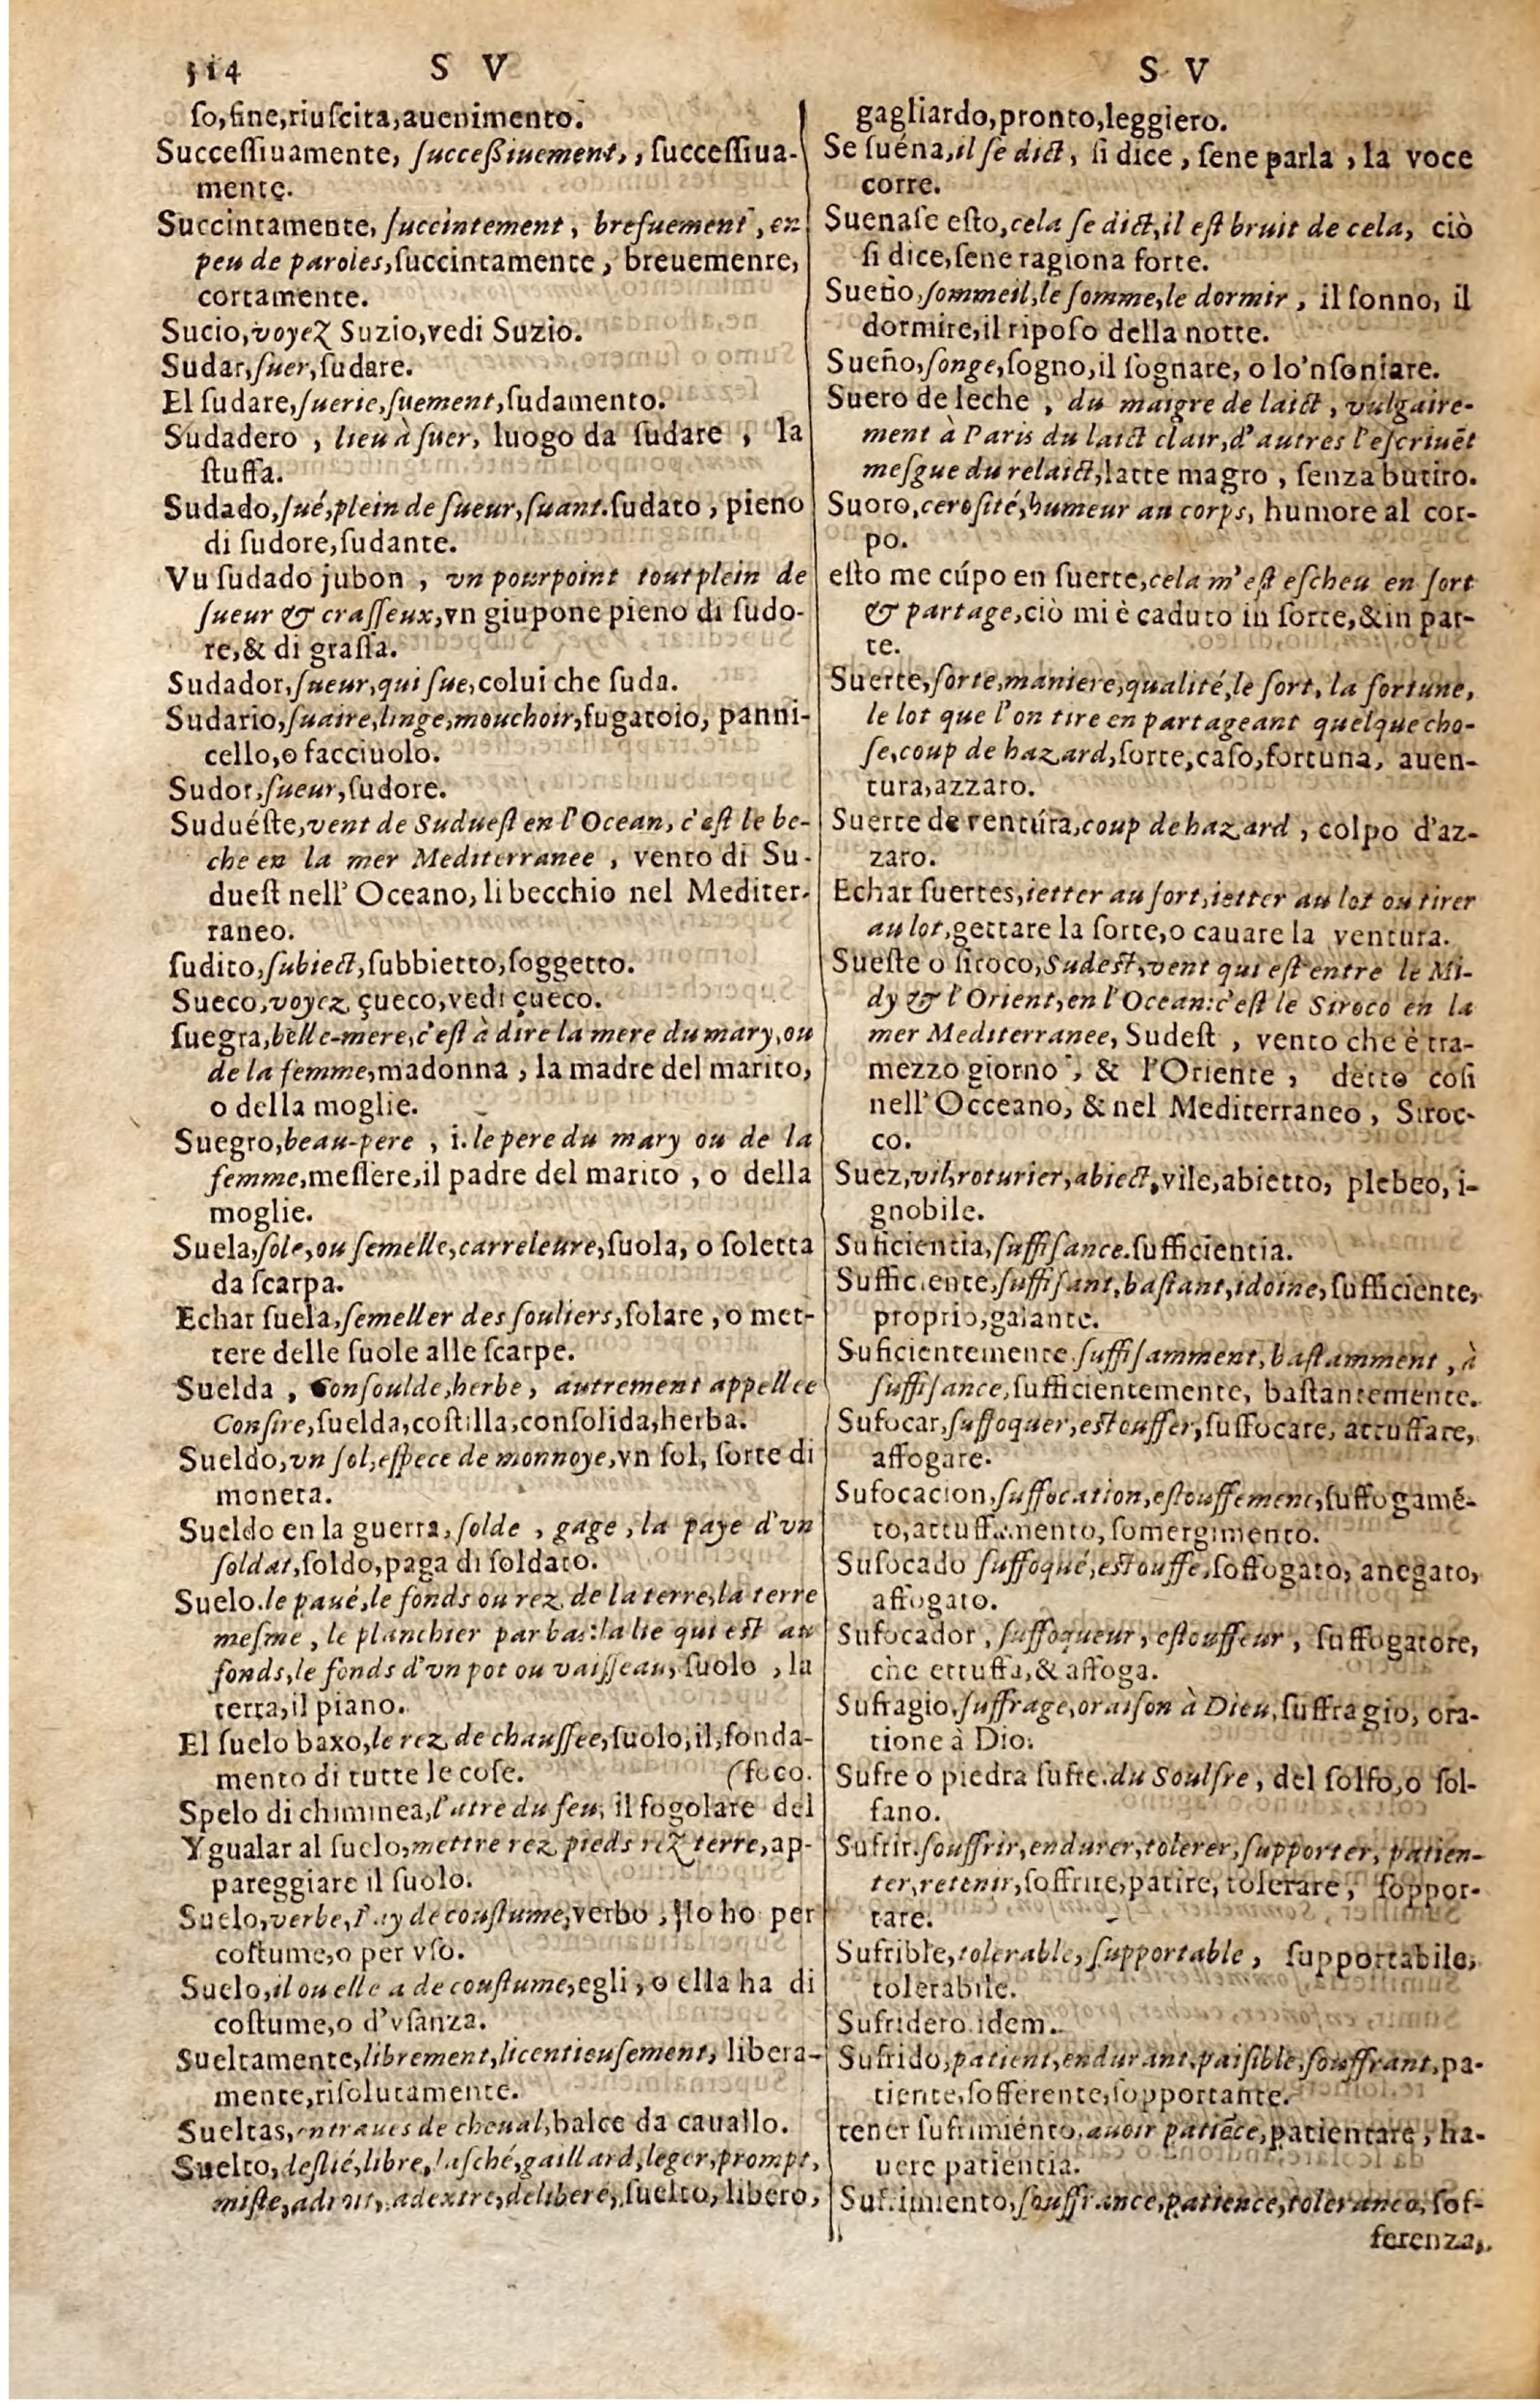 514 S V
ſo,fine,riuſcita,auenimento.
Succeſſiuamente, ſucceßiuement,, ſucceſſiua-
mente.
Succintamente, ſuccintement, brefuement, en
peu de paroles,ſuccintamente, breuemenre,
cortamente.
Sucio,voyez Suzio,vedi Suzio.
Sudar,ſuer,ſudare.
El ſudare,ſuerie,ſuement,ſudamento.
Sudadero, lieu à ſuer, luogo da ſudare, la
ſtuffa.
Sudado,ſué,plein de ſueur,ſuant.ſudato, pieno
di ſudore,ſudante.
Vu ſudado jubon, vn pourpoint tout plein de
ſueur & craſſeux,vn giupone pieno di ſudo-
re,& di graſſa.
Sudador,ſueur,qui ſue,colui che ſuda.
Sudario,ſuaire,linge,mouchoir,ſugatoio, panni-
cello,o facciuolo.
Sudor,ſueur,ſudore.
Suduéſte,vent de Sudueſt en l'Ocean, c'eſt le be-
che en la mer Mediterranee, vento di Su-
dueſt nell' Oceano, libecchio nel Mediter-
raneo.
ſudito,ſubiect,ſubbietto,ſoggetto.
Sueco,voyez çueco,vedi çueco.
ſuegra,belle-mere,c'eſt à dire la mere du mary,ou
de la femme,madonna, la madre del marito,
o della moglie.
Suegro,beau-pere, i.le pere du mary ou de la
femme,meſſere,il padre del marito, o della
moglie.
Suela,ſole,ou ſemelle,carreleure,ſuola, o ſoletta
da ſcarpa.
Echar ſuela,ſemeller des ſouliers,ſolare, o met-
tere delle ſuole alle ſcarpe.
Suelda, Conſoulde,herbe, autrement appellee
Conſire,ſuelda,coſtilla,conſolida,herba.
Sueldo,vn ſol,eſpece de monnoye,vn ſol, ſorte di
moneta.
Sueldo en la guerra,ſolde, gage, la paye d'vn
ſoldat,ſoldo,paga di ſoldato.
Suelo.le paué,le fonds ou rez de la terre,la terre
meſme, le planchier par bas:la lie qui eſt au
fonds,le fonds d'vn pot ou vaiſſeau,ſuolo, la
terra,il piano.
El ſuelo baxo,le rez de chauſſee,ſuolo,il,fonda-
mento di tutte le coſe. (foco.
Spelo di chiminea,l'atre du feu, il fogolare del
Ygualar al ſuelo,mettre rez pieds rez terre,ap-
pareggiare il ſuolo.
Suelo,verbe,l'ay de couſtume,verbo, Ilo ho per
coſtume,o per vſo.
Suelo,il ou elle a de couſtume,egli, o ella ha di
coſtume,o d'vſanza.
Sueltamente,librement,licentieuſement, libera-
mente,riſolutamente.
Sueltas,entraues de cheual,balce da cauallo.
Suelto,deſlié,libre,laſché,gaillard,leger,prompt,
miſte,adroit,adextre,deliberé,ſuelto, libero,
S V
gagliardo,pronto,leggiero.
Se ſuéna,il ſe dict, ſi dice, ſene parla, la voce
corre.
Suenaſe eſto,cela ſe dict,il eſt bruit de cela, ciò
ſi dice,ſene ragiona forte.
Sueño,ſommeil,le ſomme,le dormir, il ſonno, il
dormire,il ripoſo della notte.
Sueño,ſonge,ſogno,il ſognare, o lo'nſoniare.
Suero de leche, du maigre de laict, vulgaire-
ment à Paris du laict clair,d'autres l'eſcriuēt
meſgue du relaict,latte magro, ſenza butiro.
Suoro,ceroſité,humeur au corps, humore al cor-
po.
eſto me cúpo en ſuerte,cela m'eſt eſcheu en ſort
& partage,ciò mi è caduto in ſorte,& in par-
te.
Suerte,ſorte,maniere,qualité,le ſort, la fortune,
le lot que l'on tire en partageant quelque cho-
ſe,coup de hazard,ſorte,caſo,fortuna, auen-
tura,azzaro.
Suerte de ventúra,coup de hazard, colpo d'az-
zaro.
Echar ſuertes,ietter au ſort,ietter au lot ou tirer
au lot,gettare la ſorte,o cauare la ventura.
Sueſte o ſiroco,Sudeſt,vent qui eſt entre le Mi-
dy & l'Orient,en l'Ocean:c'eſt le Siroco en la
mer Mediterranee, Sudeſt, vento che è tra-
mezzo giorno, & l'Oriente, detto coſi
nell'Occeano, & nel Mediterraneo, Siroc-
co.
Suez,vil,roturier,abiect,vile,abietto, plebeo, i-
gnobile.
Suficientia,ſuffiſance.ſufficientia.
Sufficiente,ſuffiſant,baſtant,idoine,ſufficiente,
proprio,galante.
Suficientemente.ſuffiſamment,baſtamment, à
ſuffiſance,ſufficientemente, baſtantemente.
Sufocar,ſuffoquer,eſtouffer,ſuffocare, attuffare,
affogare.
Sufocacion,ſuffocation,eſtouffement,ſuffogamē-
to,attuffamento,ſomergimento.
Sufocado ſuffoqué,eſtouffé,ſoffogato, anegato,
affogato.
Sufocador, ſuffoqueur, eſtouffeur, ſuffogatore,
che ettuffa,& affoga.
Sufragio,ſuffrage,oraiſon à Dieu,ſuffragio, ora-
tione à Dio.
Sufre o piedra ſufre.du Soulfre, del ſolfo,o ſol-
fano.
Sufrir.ſouffrir,endurer,tolerer,ſupporter, patien-
ter,retenir,ſoffrire,patire, tolerare, ſoppor-
tare.
Sufrible,tolerable,ſupportable, ſupportabile,
tolerabile.
Sufridero idem.
Sufrido,patient,endurant,paiſible,ſouffrant,pa-
tiente,ſofferente,ſopportante.
tener ſufrimiénto.auoir patiēce,patientare, ha-
uere patientia.
Sufrimiento,ſouffrance,patience,tolerance,ſof-
ferenza,